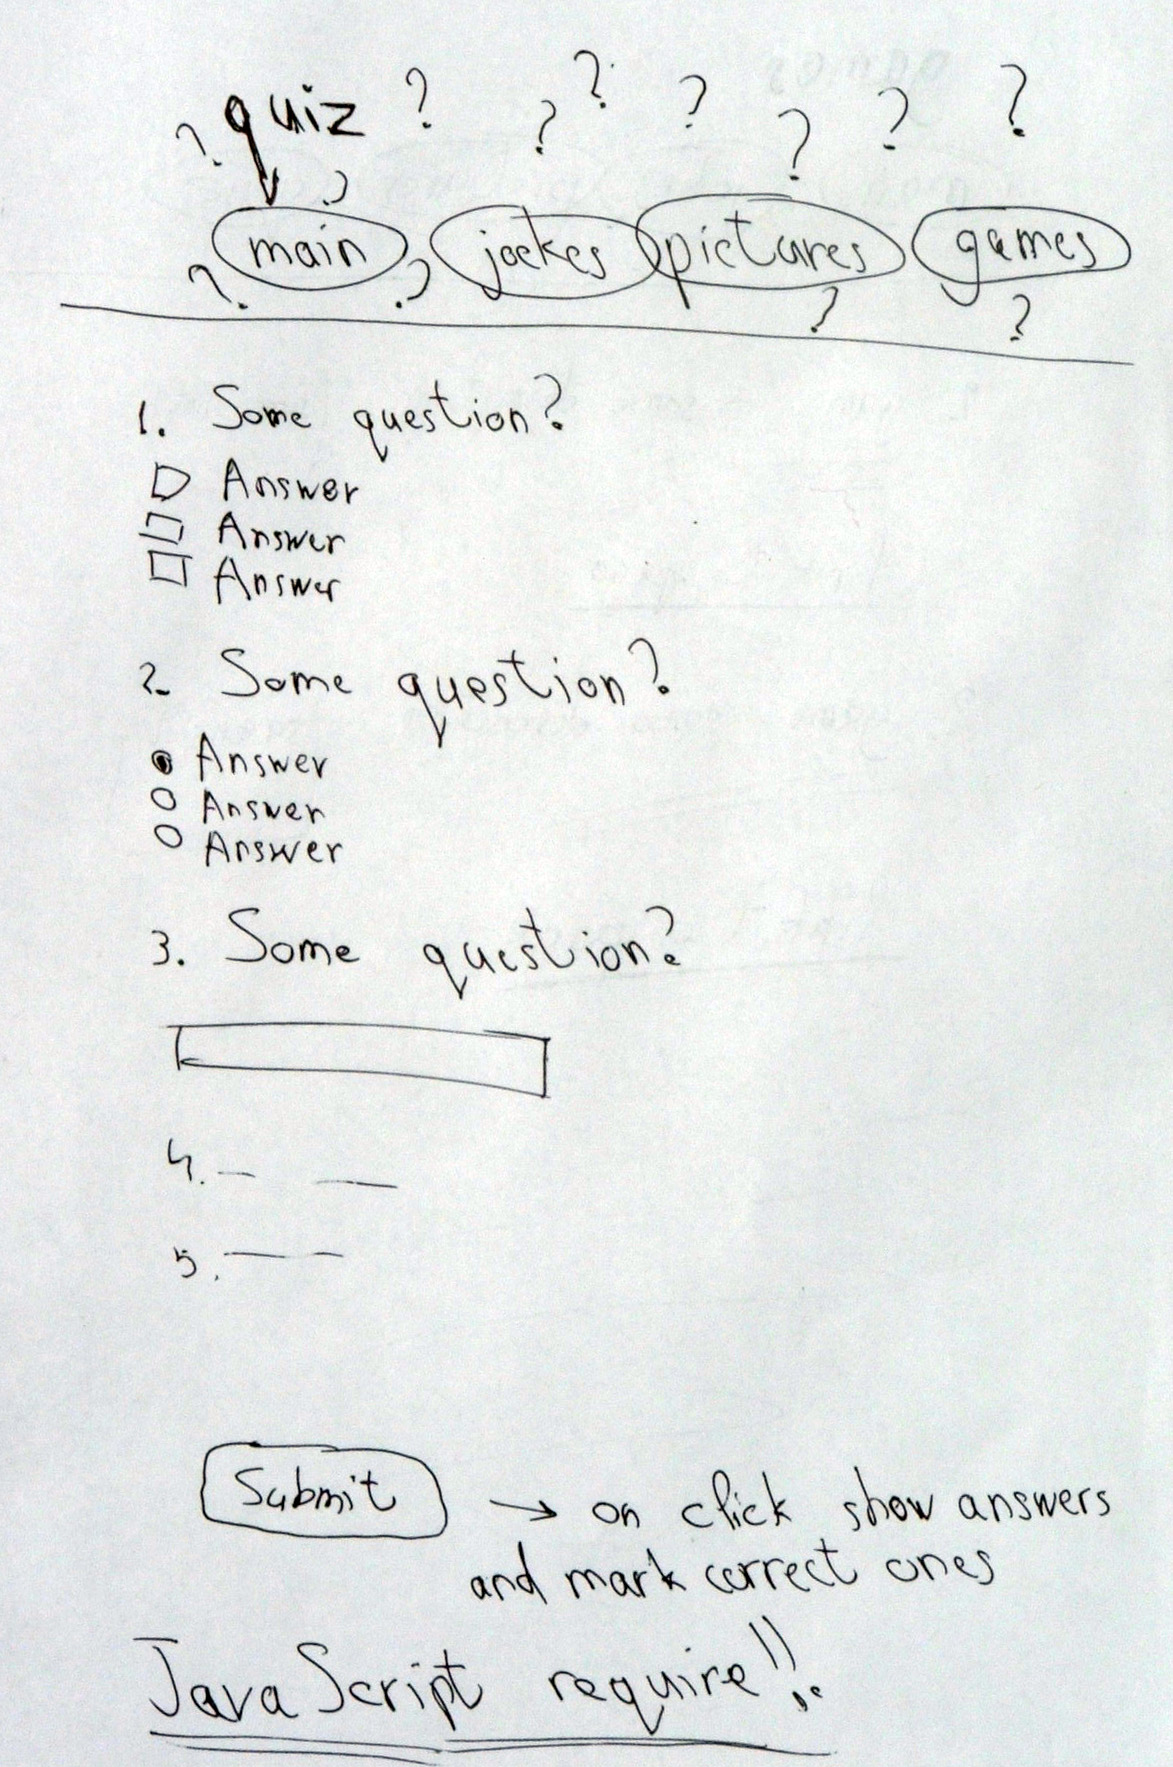 quiz ? ? ? ? ? ? ?
? ?
main jookes pictures games
? ? ? ?
1. Some question?
Answer
Answer
Answer
2. Some question?
Answer
Answer
Answer
3. Some question?
4.
5.
Submit → on click show answers
and mark correct ones
JavaScript require!!